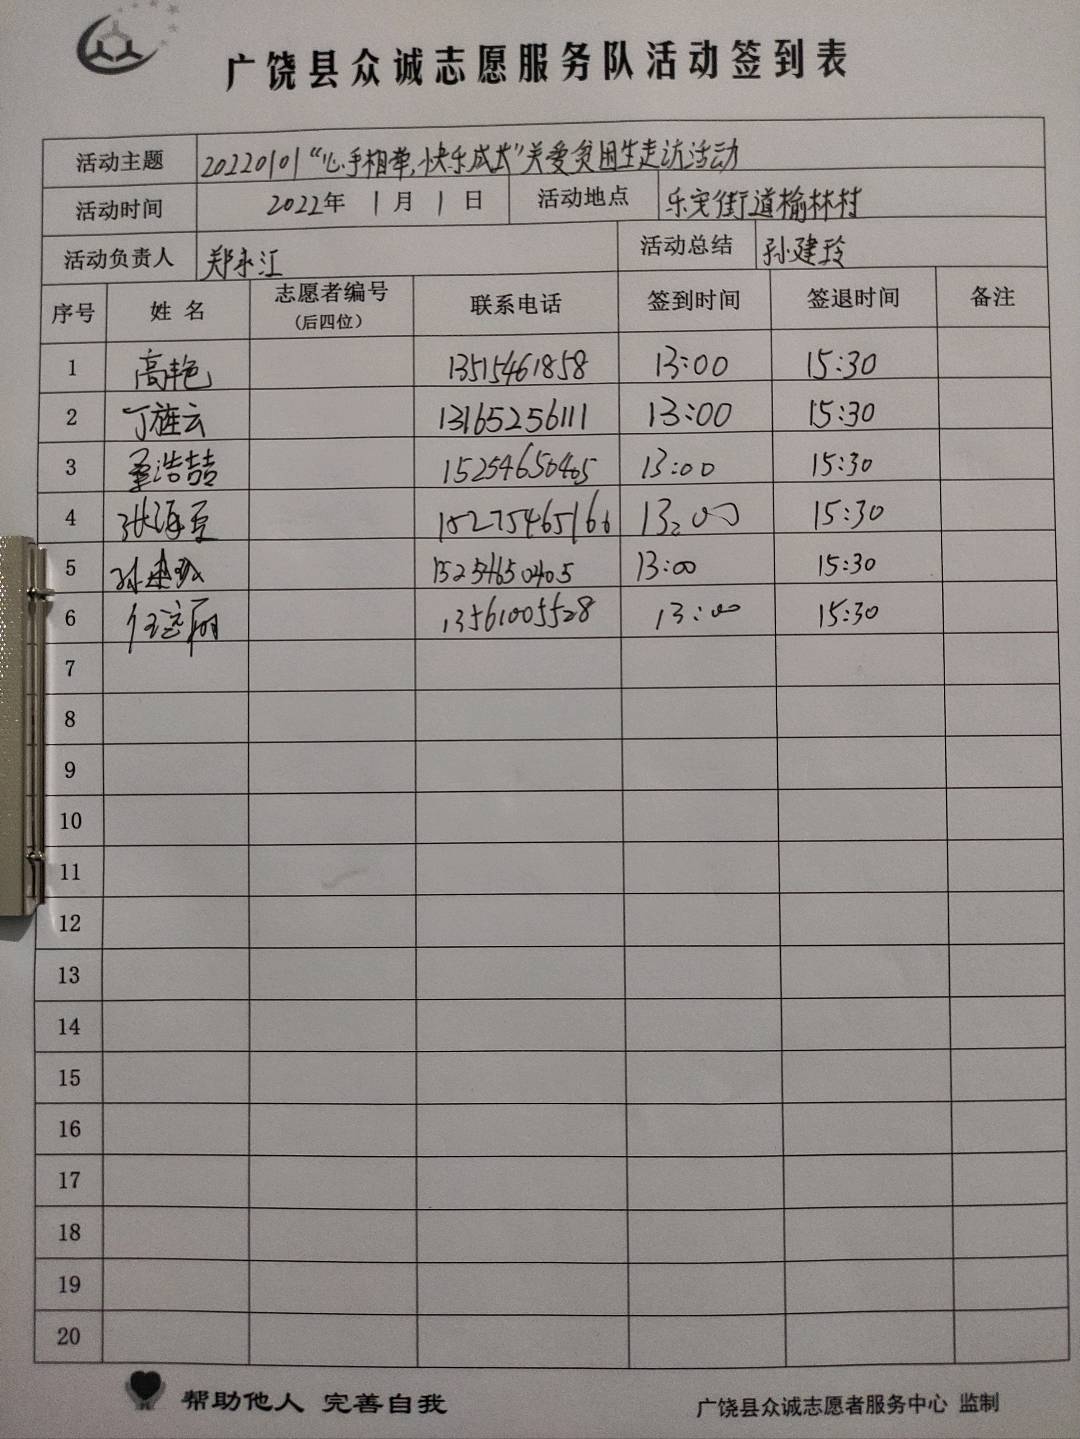 广饶县众诚志愿服务队活动签到表
活动主题 20220101“心手相牵,快乐成长”关爱贫困生走访活动
活动时间 2022年 1月 1日 活动地点 乐安街道榆林村
活动负责人 郑永江 活动总结 孙建玲
序号 姓名 志愿者编号 (后四位) 联系电话 签到时间 签退时间 备注
1 高艳 13515461858 13:00 15:30
2 丁雄云 13165256111 13:00 15:30
3 浩喆 15254650405 13:00 15:30
4 张海 15275465166 13:00 15:30
5 孙建玲 15254650405 13:00 15:30
6 任远丽 13561005528 13:00 15:30
7
8
9
10
11
12
13
14
15
16
17
18
19
20
帮助他人 完善自我
广饶县众诚志愿者服务中心 监制